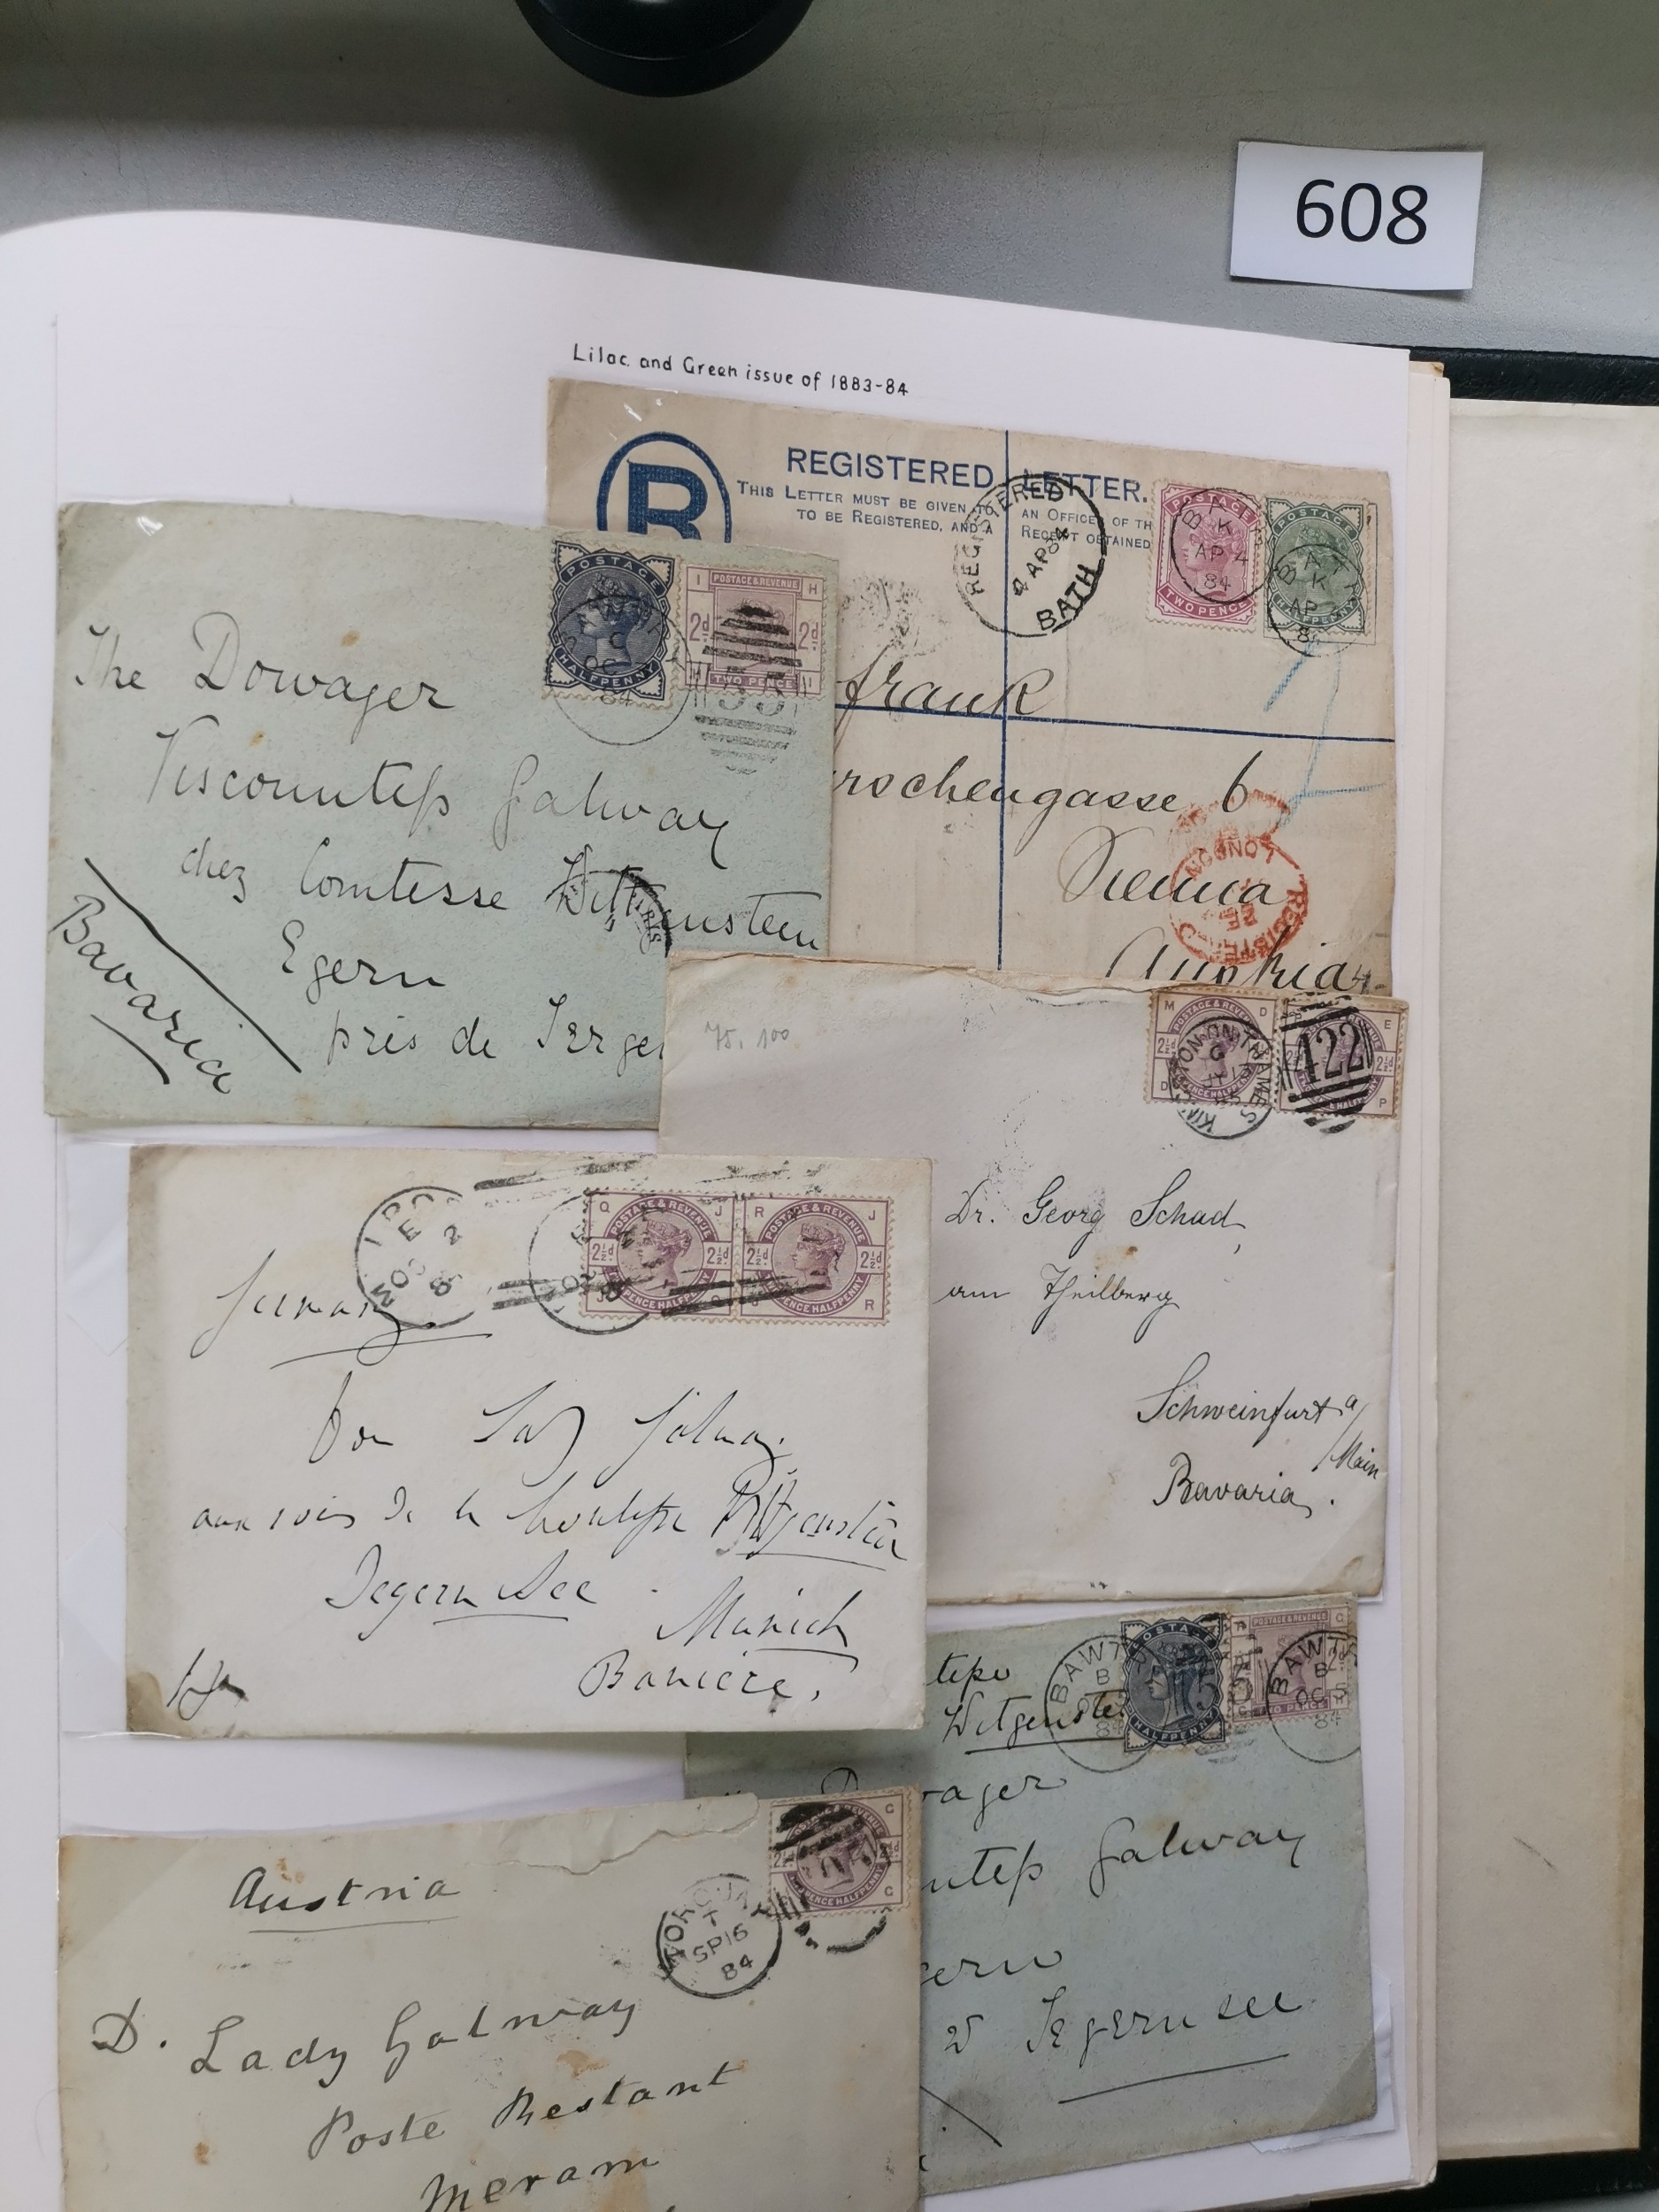 608
Lilac and Green issue of 1883-84
R
REGISTERED LETTER.
THIS LETTER MUST BE GIVEN TO AN OFFICER OF TH
TO BE REGISTERED, AND A RECEIPT OBTAINED
REGISTERED
4 AP 84
BATH
POSTAGE
TWO PENCE
POSTAGE
HALFPENNY
K
AP 4
84
frank
rochengasse 6
Vienna
Austria
LONDON
REGISTERED
POSTAGE
HALFPENNY
I POSTAGE & REVENUE H
2d 2d
H TWO PENCE I
The Dowager
Viscountess Galway
chez Comtesse Wittgenstein
Egern
près de Terger
Bavaria
75. 100
M POSTAGE & REVENUE D
2½d
D
KINGSTON ON THAMES
422
E
2½d
P
Dr. Georg Schad,
am Theilberg
Schweinfurt a/
Main
Bavaria.
Q POSTAGE & REVENUE J
2½d 2½d
PENCE HALFPENNY
R POSTAGE & REVENUE J
2½d 2½d
PENCE HALFPENNY R
E
2
Germany
aux soins de la
Tegern See
Munich
Bavière,
POSTAGE
HALFPENNY
POSTAGE & REVENUE G
2d
TWO PENCE
BAWT
B
84
BAWT
B
OC 5
84
tesse
Witgenste
ager
ntess Galway
gern
Tegernsee
POSTAGE & REVENUE G
2½d
PENCE HALFPENNY G
TORQUAY
T
SP 16
84
Austria
D. Lady Galway
Poste Restant
Meram